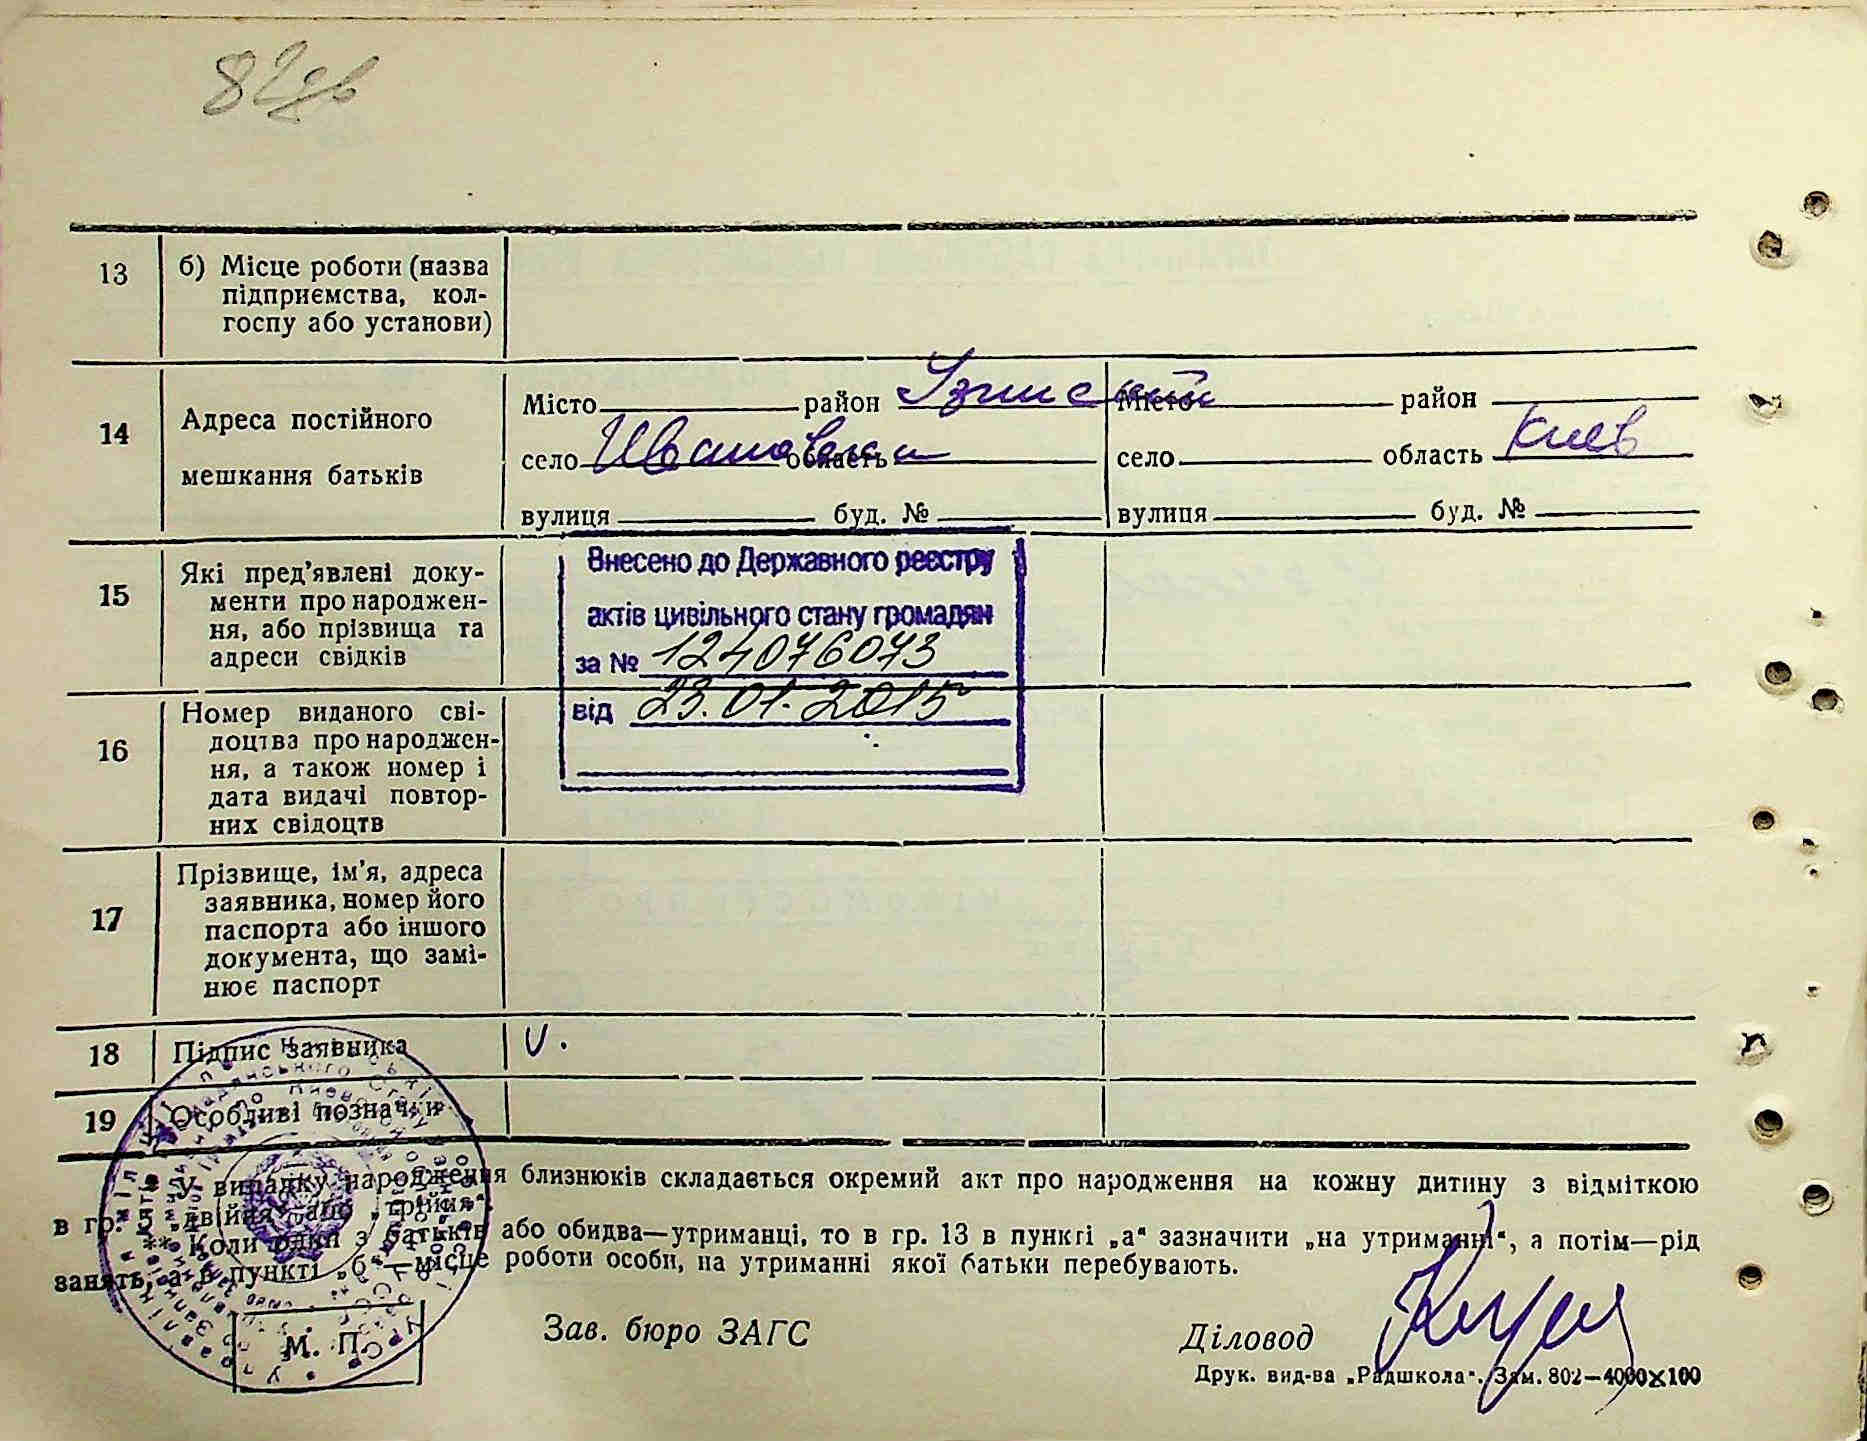 13 б) Місце роботи (назва
підприємства, кол-
госпу або установи)
14 Адреса постійного
мешкання батьків
Місто район Місто район
село Ивановка область село область Киев
вулиця буд. № вулиця буд. №
15 Які пред'явлені доку-
менти про народжен-
ня, або прізвища та
адреси свідків
Внесено до Державного реєстру
актів цивільного стану громадян
за № 124076073
від 23.01.2015
16 Номер виданого сві-
доцтва про народжен-
ня, а також номер і
дата видачі повтор-
них свідоцтв
17 Прізвище, ім'я, адреса
заявника, номер його
паспорта або іншого
документа, що замі-
нює паспорт
18 Підпис заявника
19 Особливі позначки
* У випадку народження близнюків складається окремий акт про народження на кожну дитину з відміткою
в гр. 5 „двійня“ або „трійня“.
** Коли один з батьків або обидва—утриманці, то в гр. 13 в пункті „а“ зазначити „на утриманні“, а потім—рід
занять, а в пункті „б“—місце роботи особи, на утриманні якої батьки перебувають.
М. П.
Зав. бюро ЗАГС
Діловод
Друк. вид-ва „Радшкола“. Зам. 802—4000×100